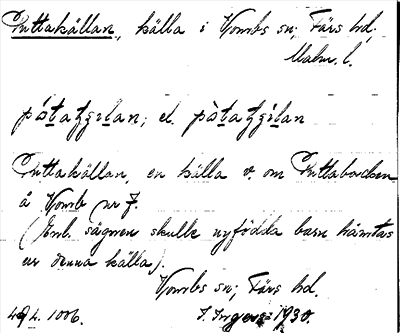 Puttakällan, källa i Vombs sn; Färs hd,
Malm. l.
pò̱tatʒilan; el. pò̱tatʒìlan
Puttakällan, en källa v. om Puttabacken
å Vomb nr 7.
(Enl. sägnen skulle nyfödda barn hämtas
ur denna källa).
Vombs sn; Färs hd.
4921. 1006. S. Ingers 1930.